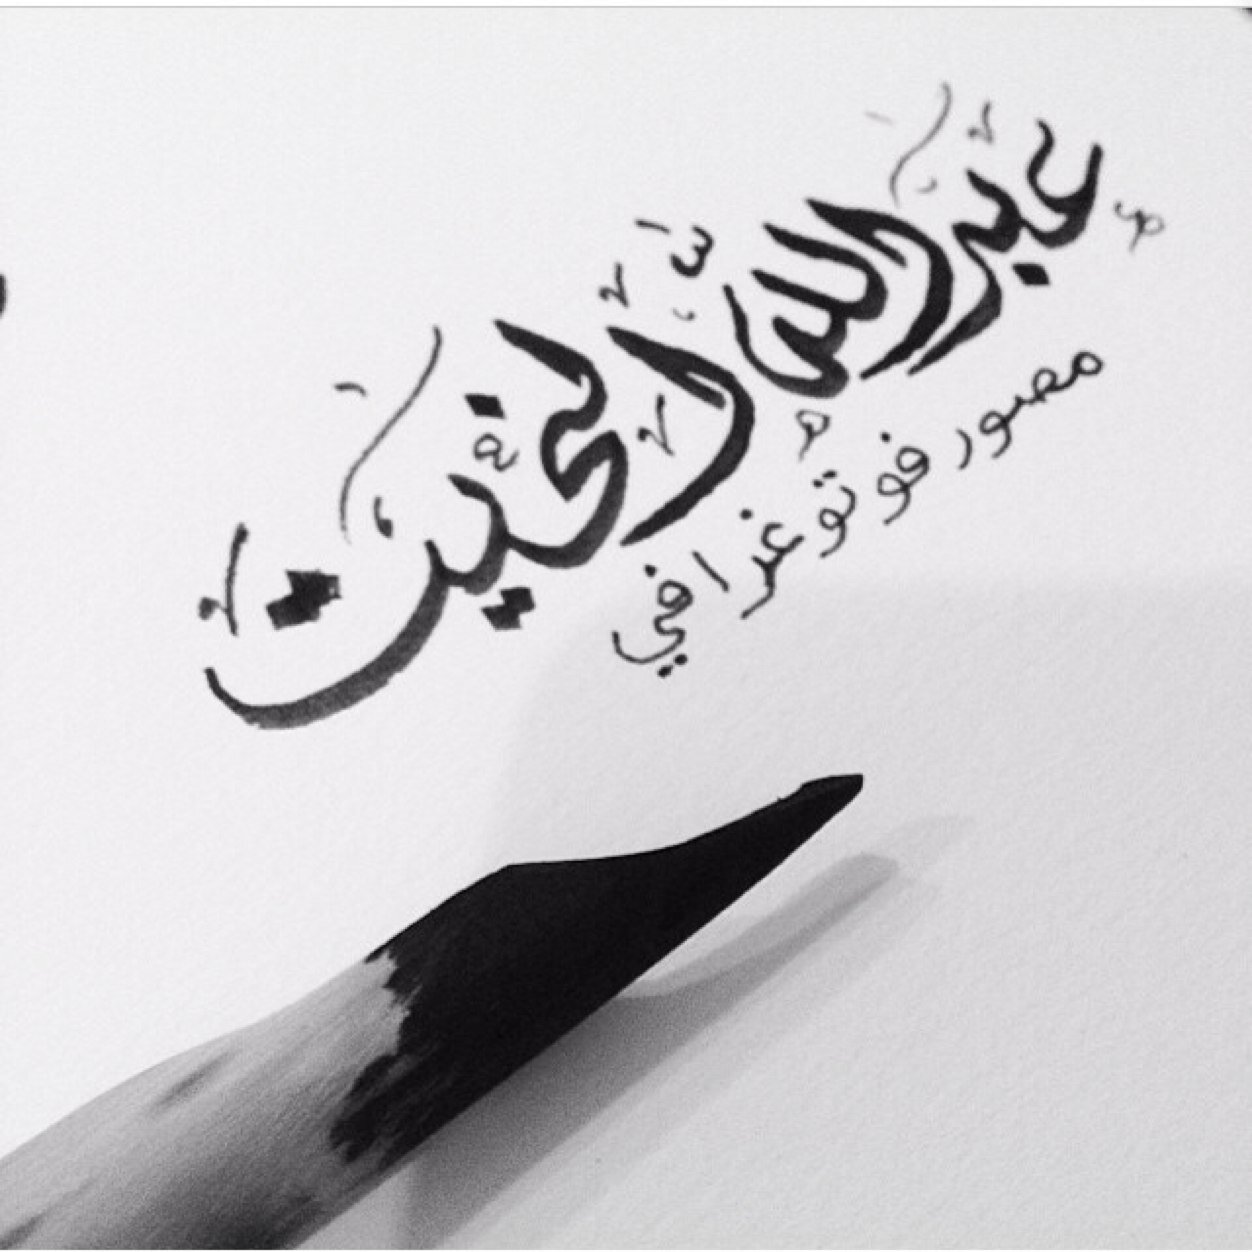 عبدالله الخيت
مصور فوتوغرافي